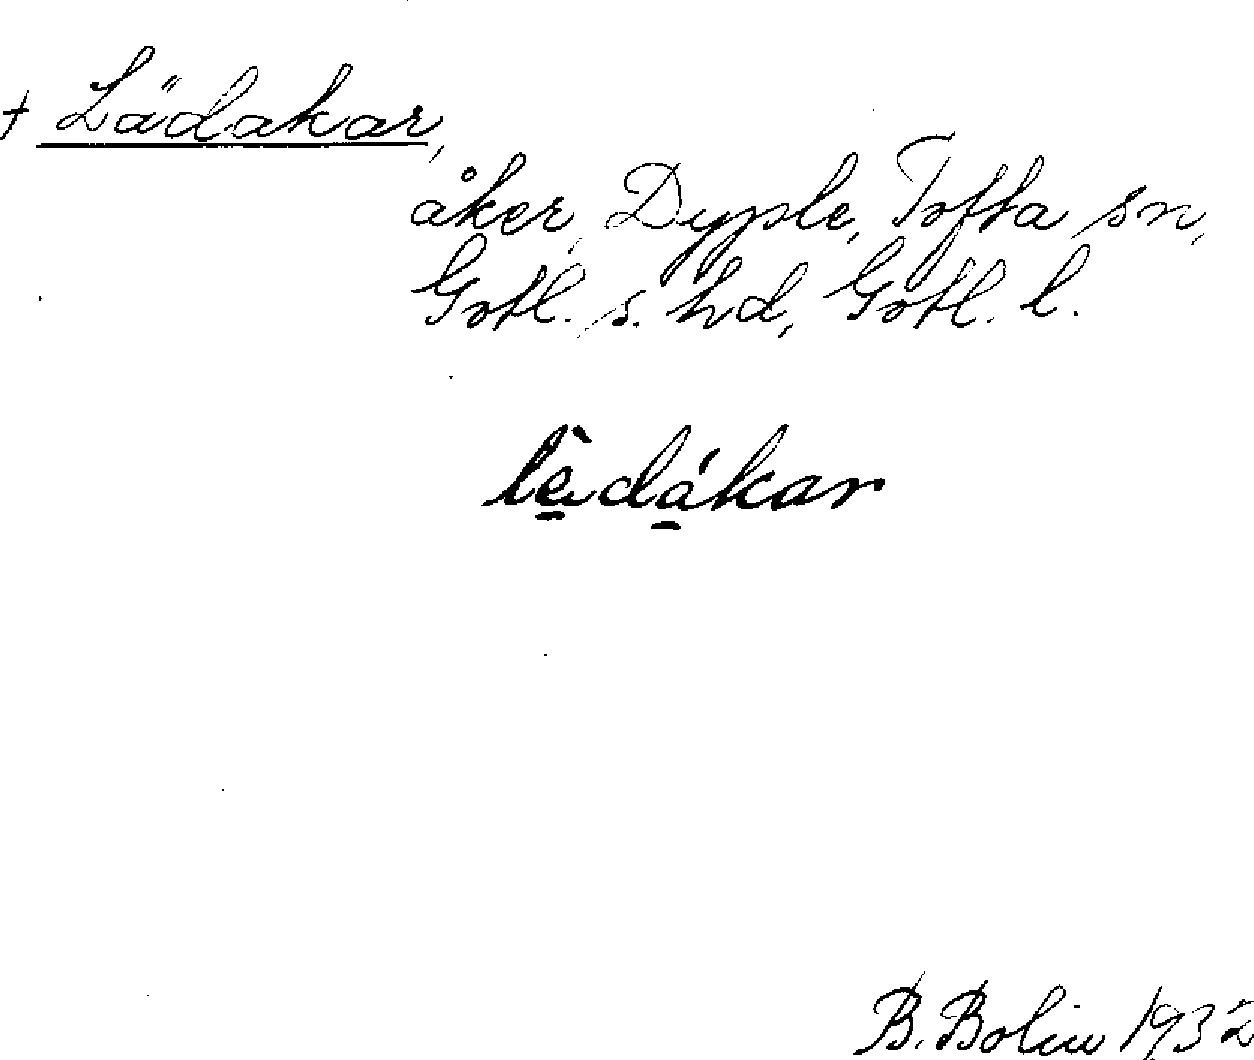 + Lädakar,
åker, Dyple, Tofta sn,
Gotl. s. hd, Gotl. l.
lèdákar
B. Bolin 1932